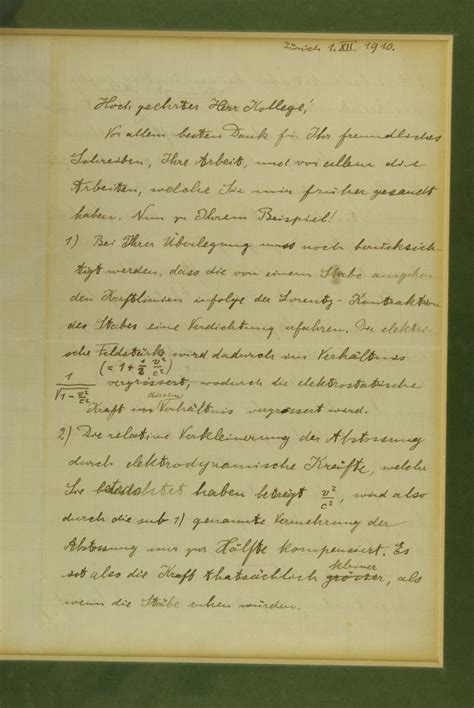 Zürich 1. XII. 1910.
Hoch geehrter Herr Kollege!
Vor allem besten Dank für Ihr freundliches
Schreiben, Ihre Arbeit, und vor allem die
Arbeiten, welche Sie mir früher gesandt
haben. Nun zu Ihrem Beispiel!
1) Bei Ihrer Überlegung muss noch berücksich-
tigt werden, dass die von einem Stabe ausgehen
den Kraftlinien infolge der Lorentz-Kontraktion
des Stabes eine Verdichtung erfahren. Die elektri-
sche Feldstärke wird dadurch im Verhältnis
1/√(1 - v²/c²) (= 1 + 1/2 v²/c²) vergrössert, wodurch die elektrostatische
Kraft im diesem Verhältnis vergrössert wird.
2) Die relative Verkleinerung der Abstossung
durch elektrodynamische Kräfte, welche
Sie betrachtet haben beträgt v²/c², wird also
durch die sub 1) genannte Vermehrung der
Abstossung nur zur Hälfte kompensiert. Es
ist also die Kraft thatsächlich grösser kleiner, als
wenn die Stäbe ruhen würden.